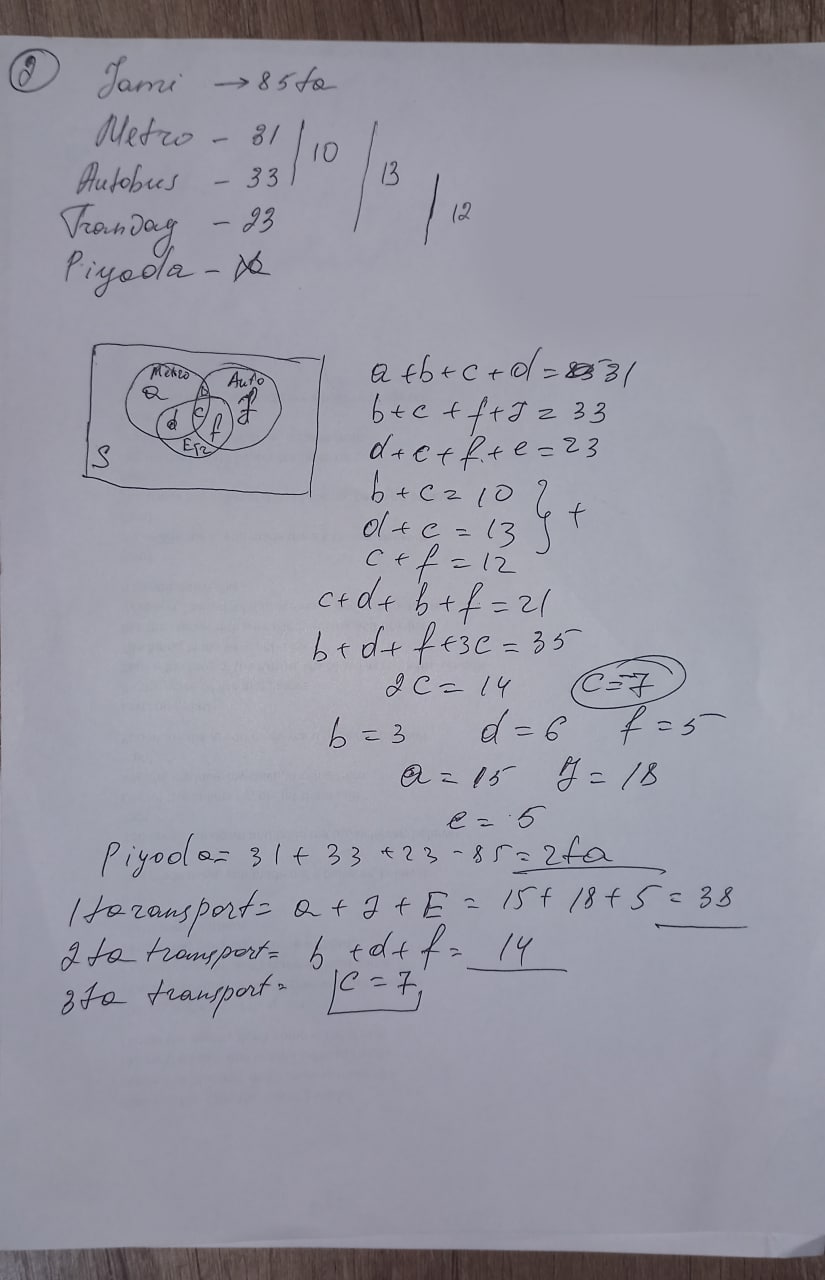 2 Jami → 85 ta
Metro - 31 10
Autobus - 33 13
Tramvay - 23 12
Piyoda -
Metro Auto
a b J
d c f
Er
S
a + b + c + d = 31
b + c + f + J = 33
d + c + f + e = 23
b + c = 10
d + c = 13 } +
c + f = 12
c + d + b + f = 21
b + d + f + 3c = 35
2c = 14 c = 7
b = 3 d = 6 f = 5
a = 15 J = 18
e = 5
Piyoda = 31 + 33 + 23 - 85 = 2 ta
1 ta transport = a + J + E = 15 + 18 + 5 = 38
2 ta transport = b + d + f = 14
3 ta transport = c = 7